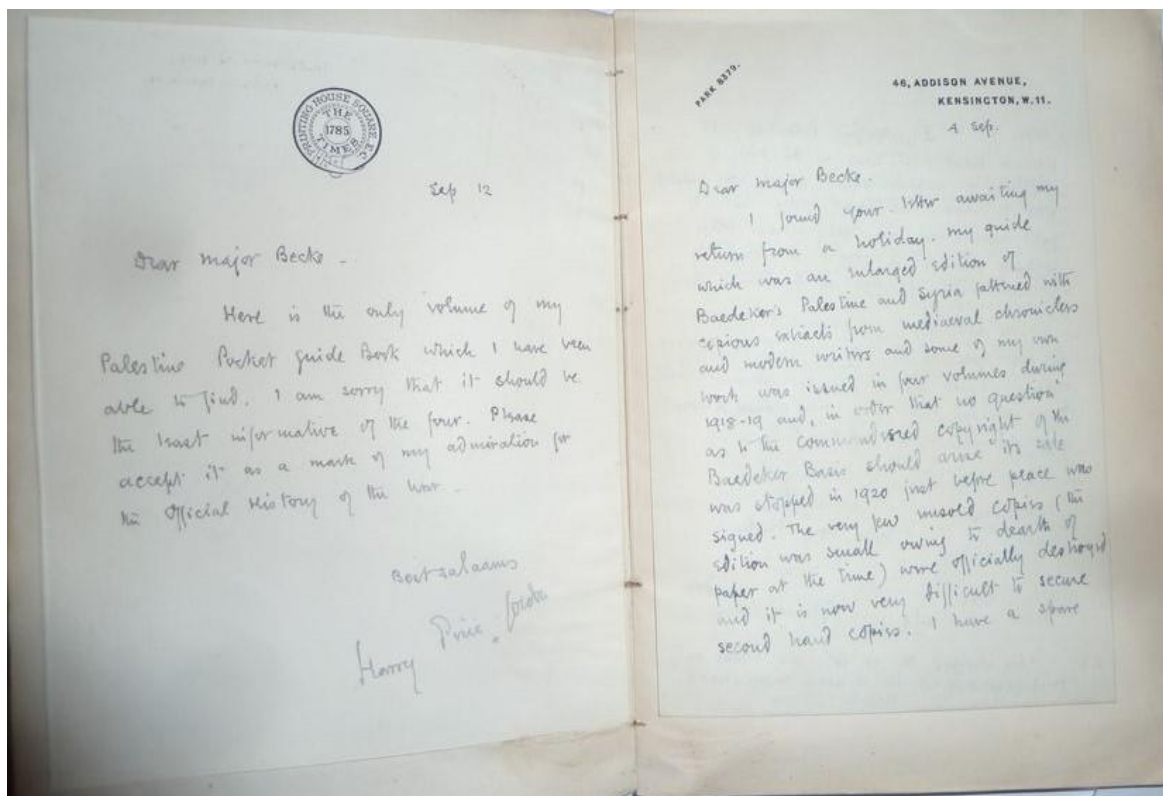 PRINTING HOUSE SQUARE, E.C.
THE
1785
TIMES
Sep 12
Dear Major Becke -
Here is the only volume of my
Palestine Pocket Guide Book which I have been
able to find. I am sorry that it should be
the least informative of the four. Please
accept it as a mark of my admiration for
the Official History of the War -
Best salaams
Harry Pirie-Gordon
PARK 8379.
46, ADDISON AVENUE,
KENSINGTON, W.11.
4 Sep.
Dear Major Becke.
I found your letter awaiting my
return from a holiday. My guide
which was an enlarged edition of
Baedeker's Palestine and Syria fattened with
copious extracts from mediaeval chroniclers
and modern writers and some of my own
work was issued in four volumes during
1918-19 and, in order that no question
as to the commandeered copyright of the
Baedeker Basis should arise its sale
was stopped in 1920 just before peace was
signed. The very few unsold copies (the
edition was small owing to dearth of
paper at the time) were officially destroyed
and it is now very difficult to secure
second hand copies. I have a spare